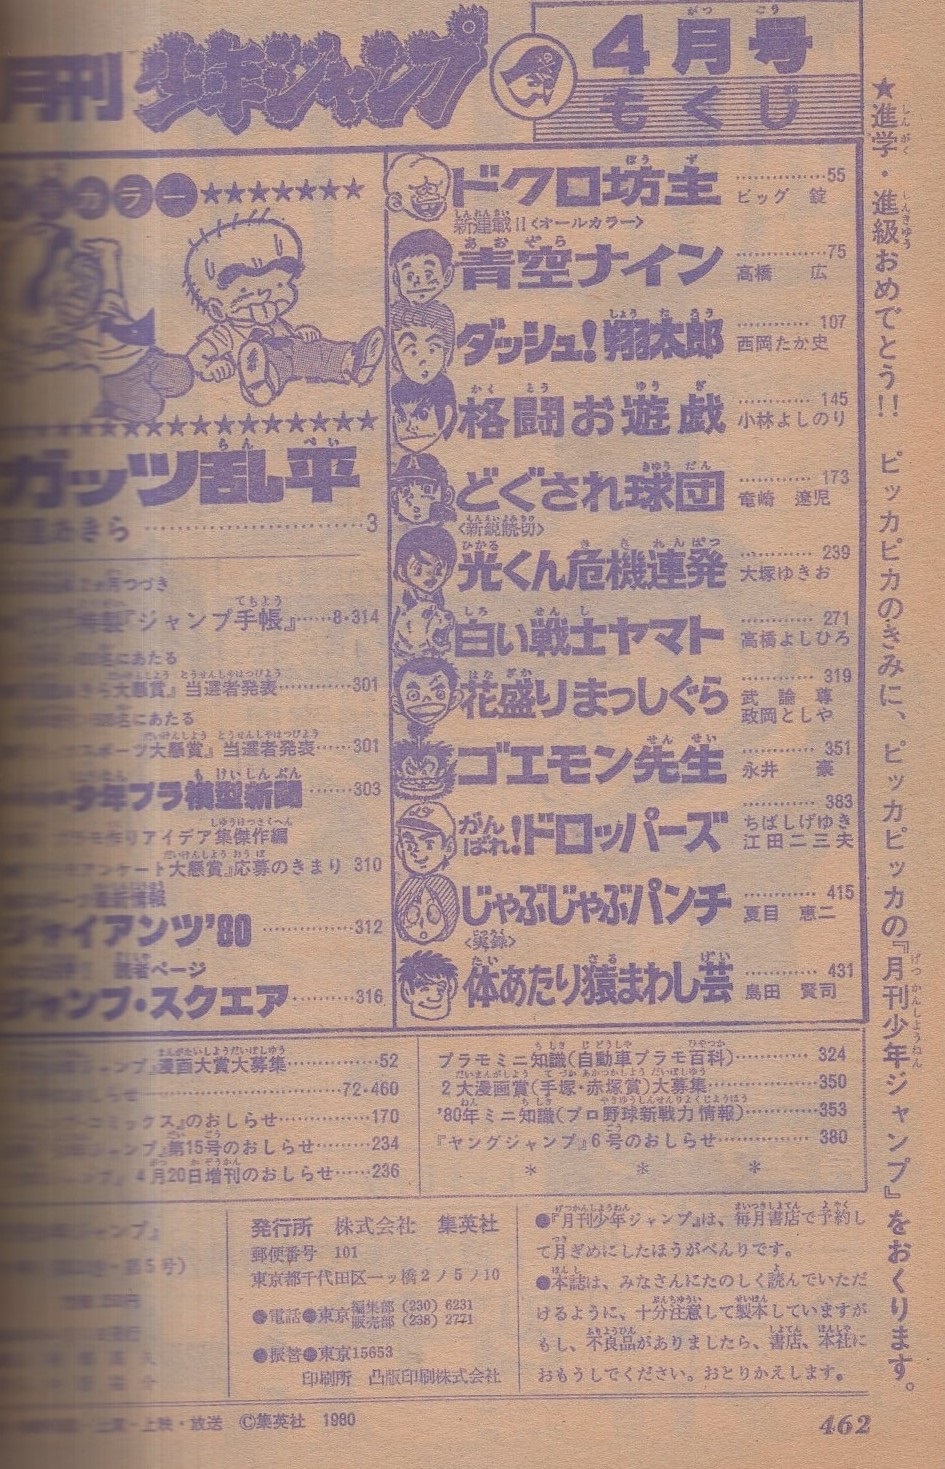 月刊 少年ジャンプ
4月号
もくじ
カラー
ガッツ乱平
あきら 3
つづき
『ジャンプ手帳』 8・314
名にあたる
大懸賞』当選者発表 301
名にあたる
スポーツ大懸賞』当選者発表 301
少年プラ模型新聞 303
アイデア集傑作編
アンケート大懸賞』応募のきまり 310
ジャイアンツ'80 312
読者ページ
ジャンプ・スクエア 316
ドクロ坊主 55
ビッグ 錠
新連載!!〈オールカラー〉
青空ナイン 75
高橋 広
ダッシュ!翔太郎 107
西岡たか史
格闘お遊戯 145
小林よしのり
どぐされ球団 173
竜崎 遼児
〈新鋭読切〉
光くん危機連発 239
大塚ゆきお
白い戦士ヤマト 271
高橋よしひろ
花盛りまっしぐら 319
武 論尊
政岡としや
ゴエモン先生 351
永井 豪
がんばれ!ドロッパーズ 383
ちばしげゆき
江田二三夫
じゃぶじゃぶパンチ 415
夏目 恵二
〈実録〉
体あたり猿まわし芸 431
島田 賢司
漫画大賞大募集 52
しらせ 72・460
コミックス』のおしらせ 170
ジャンプ』第15号のおしらせ 234
ンプ』4月20日増刊のおしらせ 236
プラモミニ知識(自動車プラモ百科) 324
2大漫画賞(手塚・赤塚賞)大募集 350
'80年ミニ知識(プロ野球新戦力情報) 353
『ヤングジャンプ』6号のおしらせ 380
* * *
第5号)
発行所 株式会社 集英社
郵便番号 101
東京都千代田区一ッ橋2ノ5ノ10
●電話●東京 編集部(230)6231
販売部(238)2771
●振替●東京15653
印刷所 凸版印刷株式会社
●『月刊少年ジャンプ』は、毎月書店で予約し
て月ぎめにしたほうがべんりです。
●本誌は、みなさんにたのしく読んでいただ
けるように、十分注意して製本していますが
もし、不良品がありましたら、書店、本社に
おもうしでください。おとりかえします。
上演・上映・放送 ©集英社 1980
462
★進学・進級おめでとう!! ピッカピカのきみに、ピッカピッカの『月刊少年ジャンプ』をおくります。